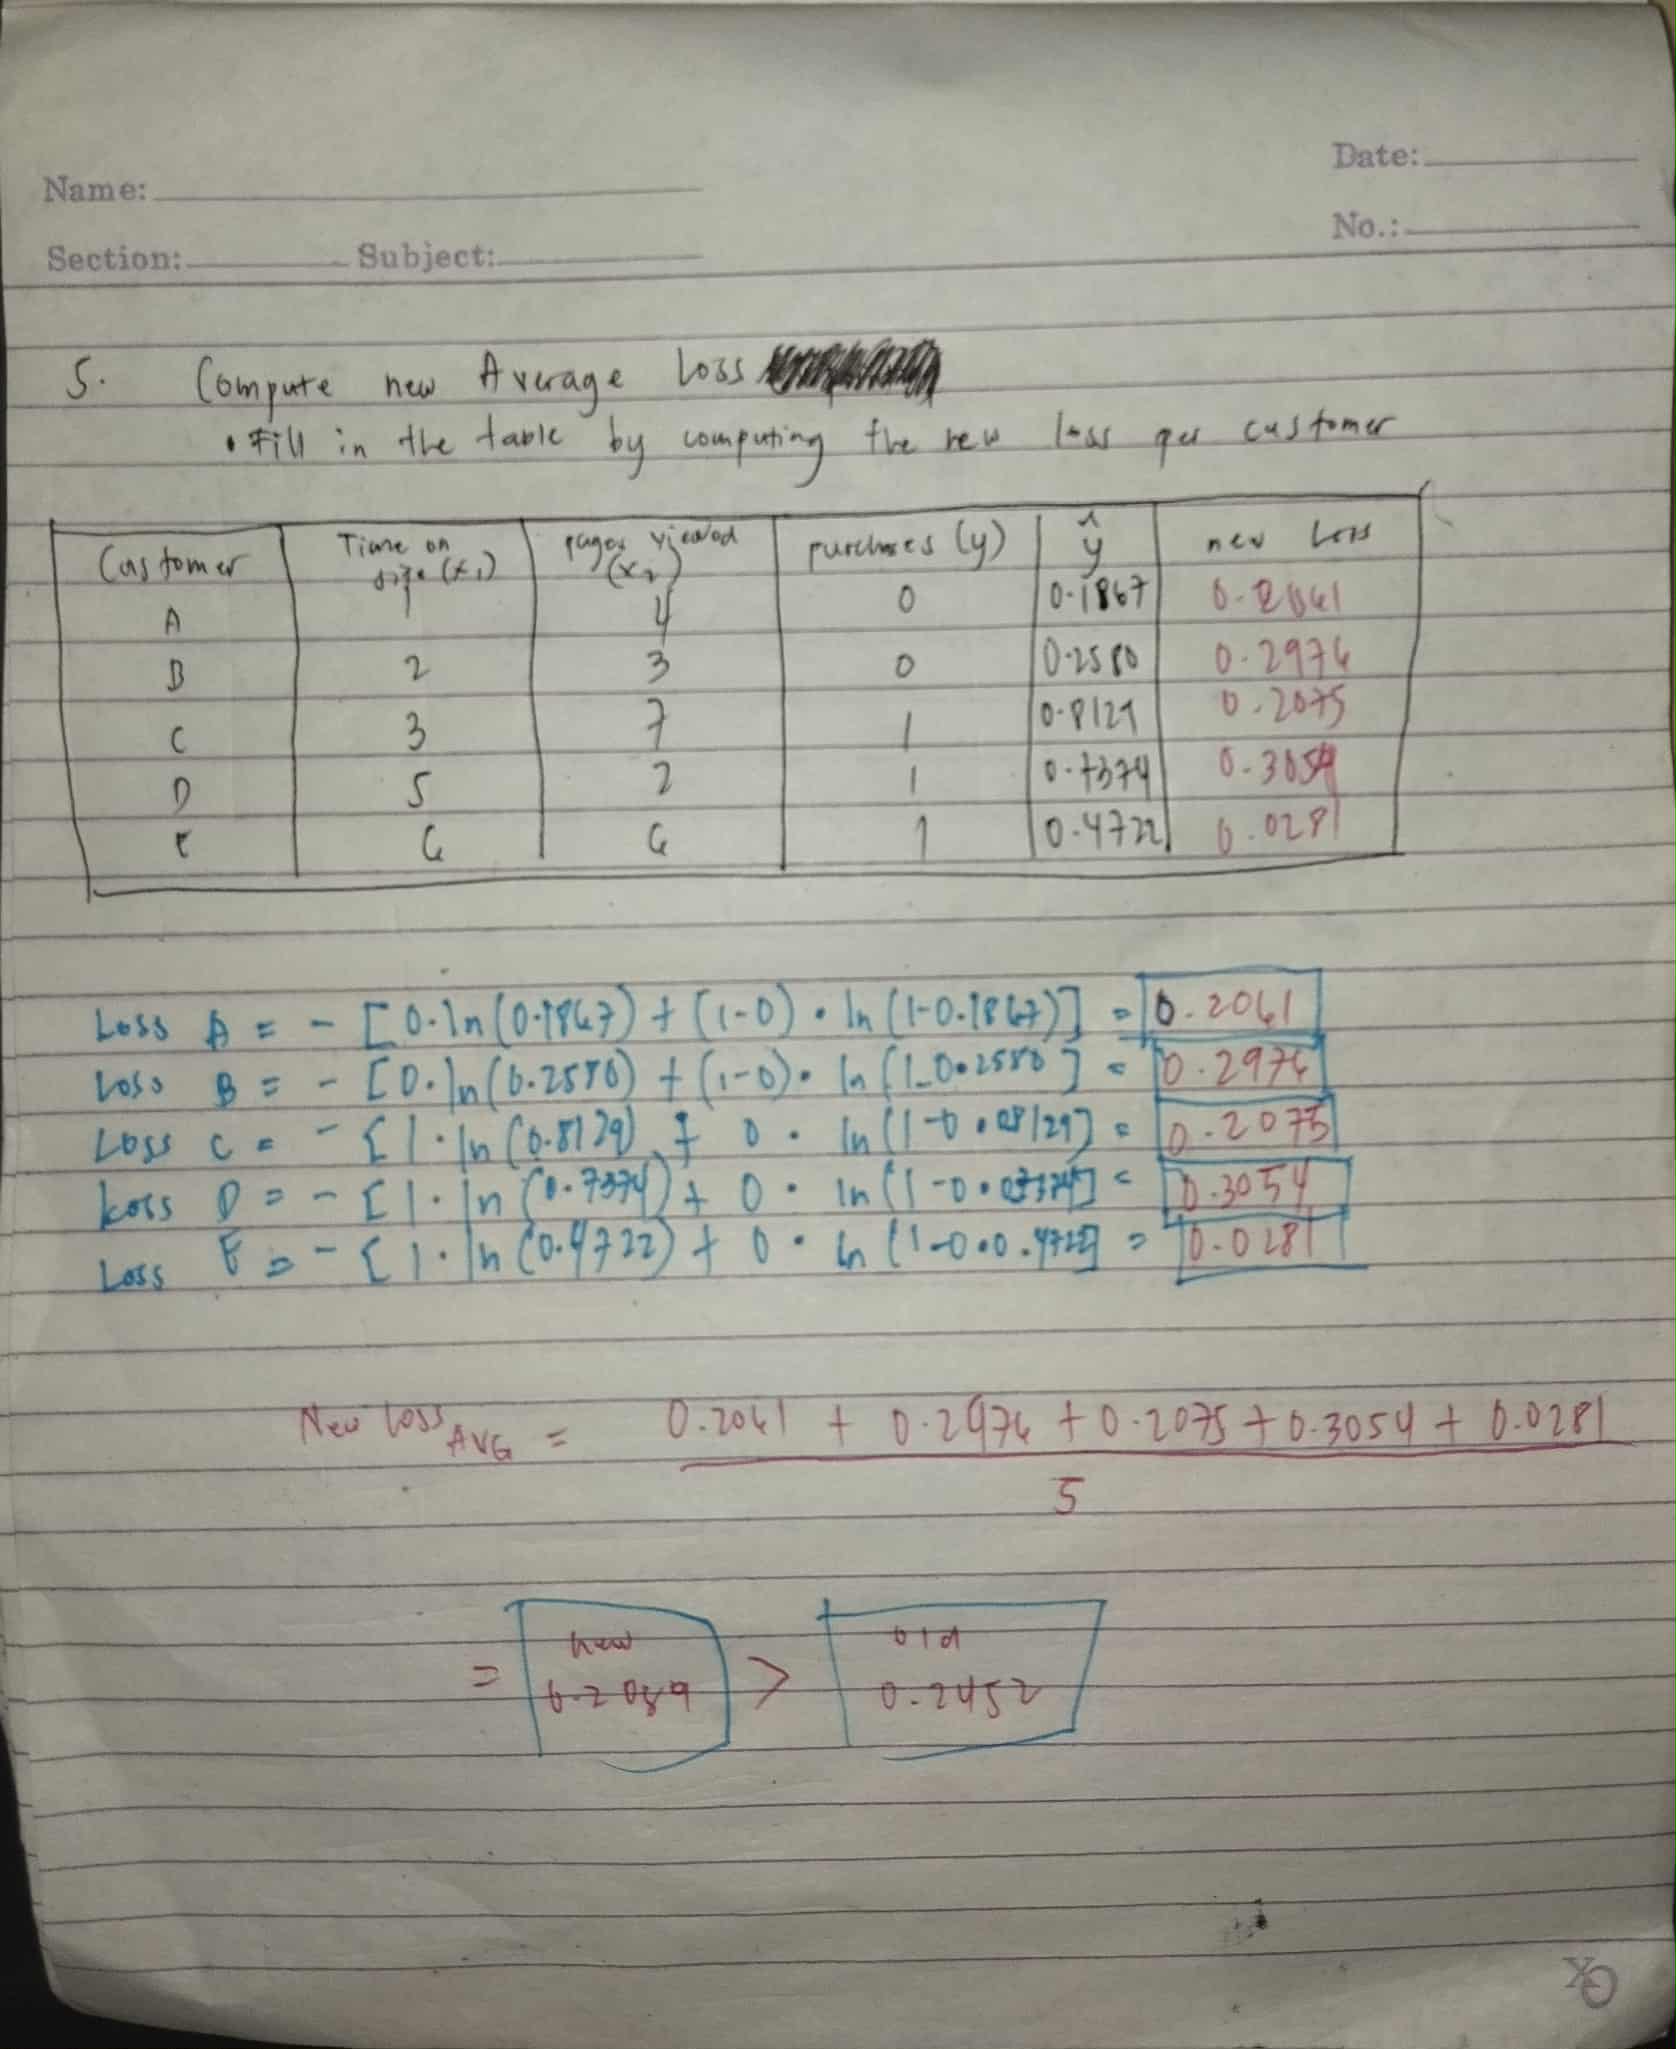 Date:
Name:
No.:
Section: Subject:
5. Compute new Average Loss
• Fill in the table by computing the new loss per customer
Customer Time on site (x₁) pages viewed (x₂) purchases (y) ŷ new Loss
A 1 4 0 0.1867 0.2061
B 2 3 0 0.2580 0.2976
C 3 7 1 0.8129 0.2075
D 5 2 1 0.7374 0.3054
E 6 6 1 0.4722 0.0281
Loss A = - [0·ln(0.1867) + (1-0) · ln (1-0.1867)] = 0.2061
Loss B = - [0·ln(0.2580) + (1-0) · ln (1-0.2580] = 0.2976
Loss C = - [1·ln(0.8129) + 0 · ln (1-0.08129] = 0.2075
Loss D = - [1·ln(0.7374) + 0 · ln (1-0. = 0.3054
Loss E = - [1·ln(0.4722) + 0 · ln (1-0.0.4722] = 0.0281
New Loss AVG = 0.2061 + 0.2976 + 0.2075 + 0.3054 + 0.0281
5
= new 0.2089 > old 0.2452